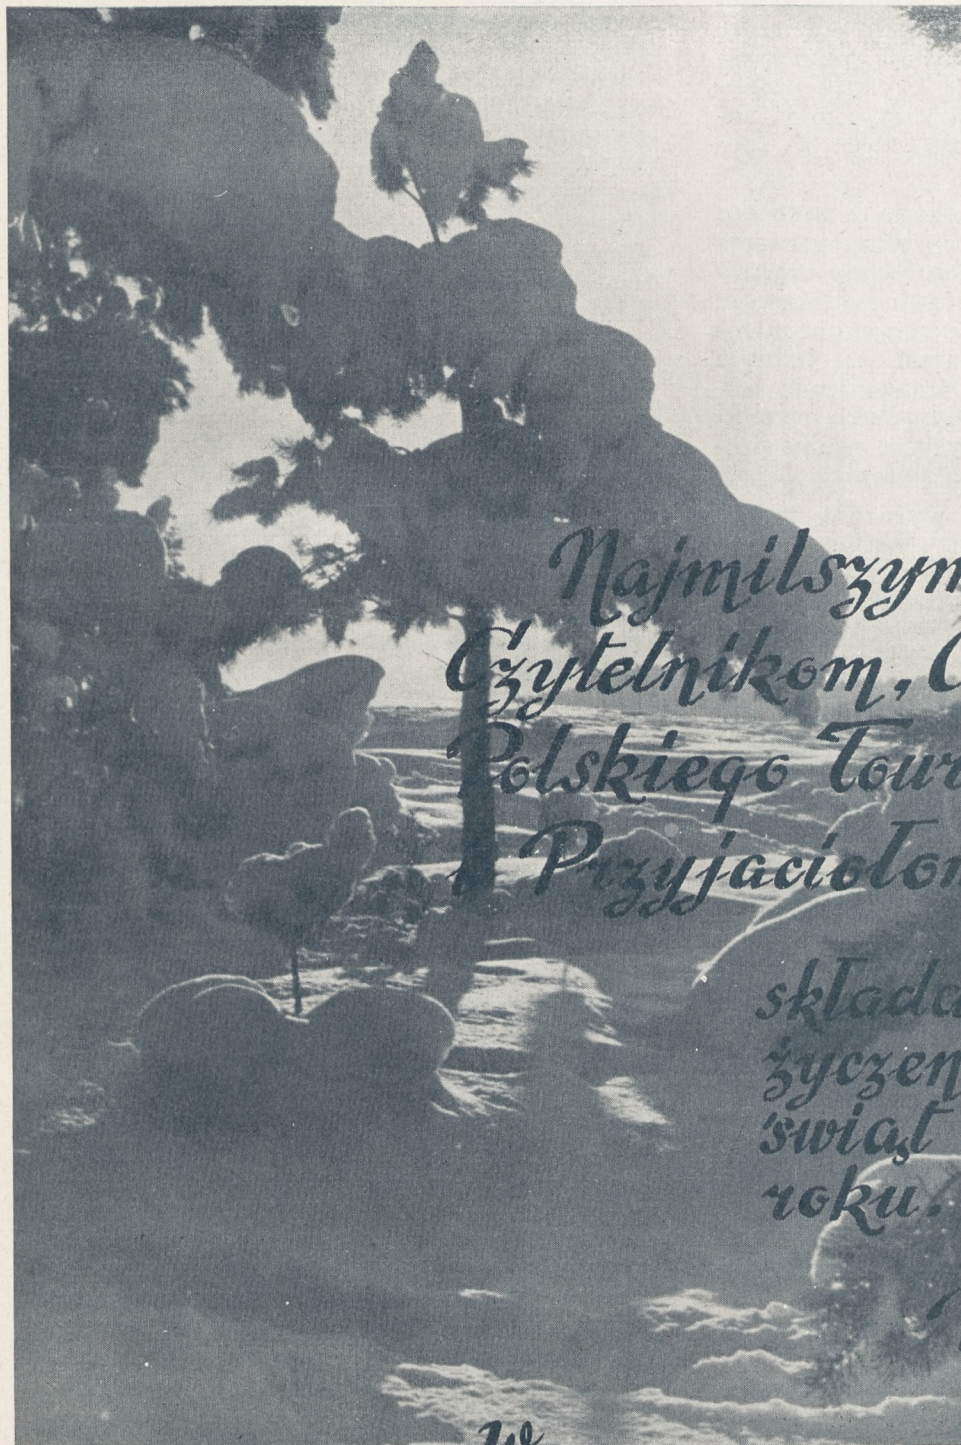 Najmilszym
Czytelnikom, C
Polskiego Tour
i Przyjaciołom
składa
życzen
świąt
roku.
W